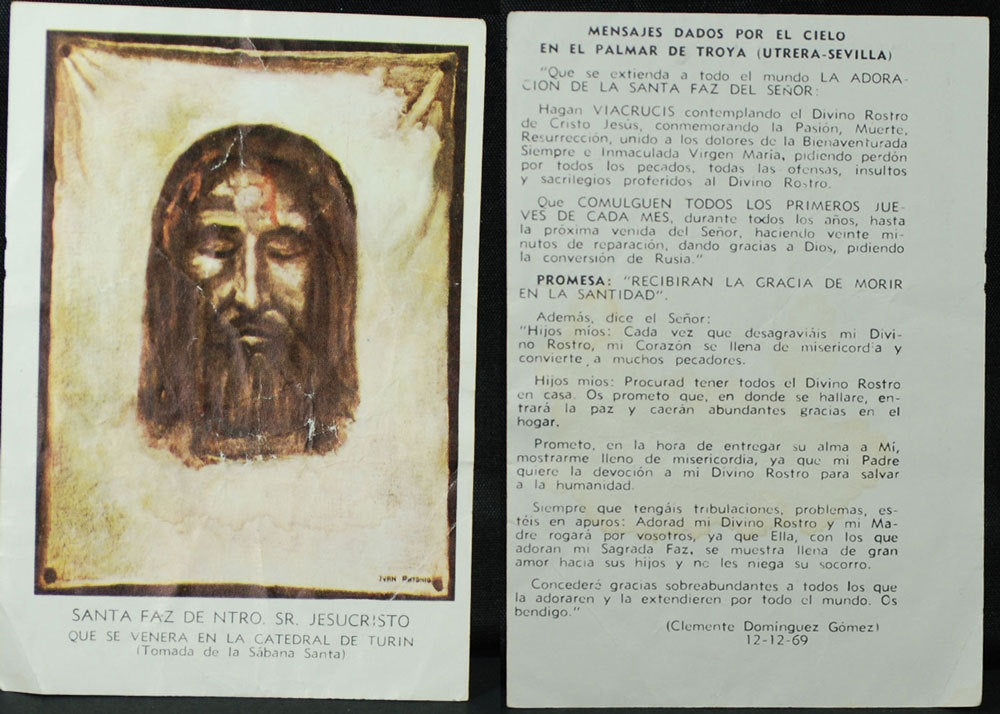 JUAN ANTONIO
SANTA FAZ DE NTRO. SR. JESUCRISTO
QUE SE VENERA EN LA CATEDRAL DE TURIN
(Tomada de la Sábana Santa)
MENSAJES DADOS POR EL CIELO
EN EL PALMAR DE TROYA (UTRERA-SEVILLA)
"Que se extienda a todo el mundo LA ADORA-
CION DE LA SANTA FAZ DEL SEÑOR:
Hagan VIACRUCIS contemplando el Divino Rostro
de Cristo Jesús, conmemorando la Pasión, Muerte,
Resurrección, unido a los dolores de la Bienaventurada
Siempre e Inmaculada Virgen María, pidiendo perdón
por todos los pecados, todas las ofensas, insultos
y sacrilegios proferidos al Divino Rostro.
Que COMULGUEN TODOS LOS PRIMEROS JUE-
VES DE CADA MES, durante todos los años, hasta
la próxima venida del Señor, haciendo veinte mi-
nutos de reparación, dando gracias a Dios, pidiendo
la conversión de Rusia."
PROMESA: "RECIBIRAN LA GRACIA DE MORIR
EN LA SANTIDAD".
Además, dice el Señor:
"Hijos míos: Cada vez que desagraviáis mi Divi-
no Rostro, mi Corazón se llena de misericordia y
convierte a muchos pecadores.
Hijos míos: Procurad tener todos el Divino Rostro
en casa. Os prometo que, en donde se hallare, en-
trará la paz y caerán abundantes gracias en el
hogar.
Prometo, en la hora de entregar su alma a Mí,
mostrarme lleno de misericordia, ya que mi Padre
quiere la devoción a mi Divino Rostro para salvar
a la humanidad.
Siempre que tengáis tribulaciones, problemas, es-
téis en apuros: Adorad mi Divino Rostro y mi Ma-
dre rogará por vosotros, ya que Ella, con los que
adoran mi Sagrada Faz, se muestra llena de gran
amor hacia sus hijos y no les niega su socorro.
Concederé gracias sobreabundantes a todos los que
la adoraren y la extendieren por todo el mundo. Os
bendigo."
(Clemente Domínguez Gómez)
12-12-69